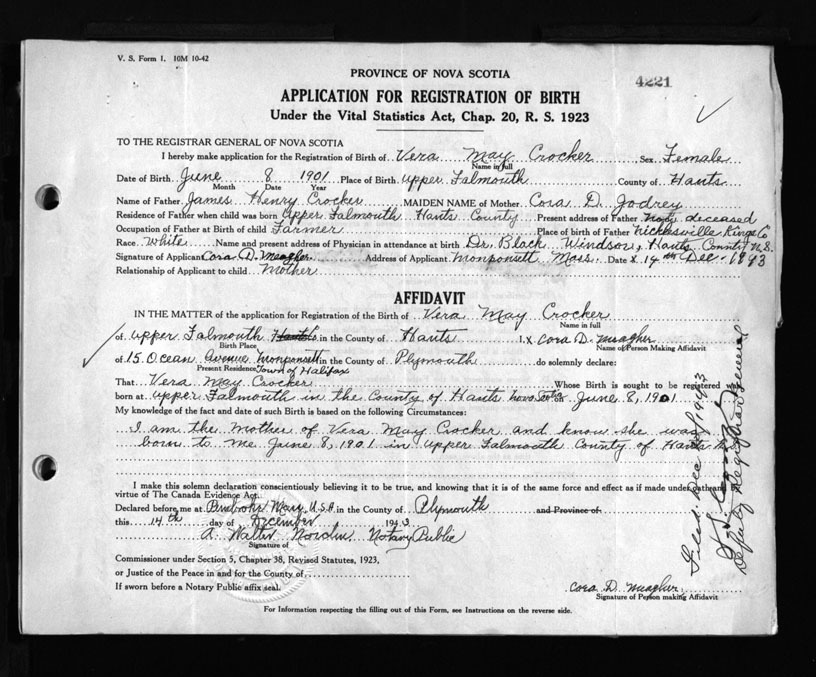 V. S. Form 1. 10M 10-42
4221
PROVINCE OF NOVA SCOTIA
APPLICATION FOR REGISTRATION OF BIRTH
Under the Vital Statistics Act, Chap. 20, R. S. 1923
TO THE REGISTRAR GENERAL OF NOVA SCOTIA
I hereby make application for the Registration of Birth of Vera May Crocker, Sex Female
Name in full
Date of Birth June 8 1901 Place of Birth Upper Falmouth County of Hants
Month Date Year
Name of Father James Henry Crocker MAIDEN NAME of Mother Cora D. Jodrey
Residence of Father when child was born Upper Falmouth Hants County Present address of Father deceased
Occupation of Father at Birth of child Farmer Place of birth of Father Nicholsville Kings Co
Race White Name and present address of Physician in attendance at birth Dr. Black Windsor, Hants County N.S.
Signature of Applicant Cora D. Meagher Address of Applicant Monponsett Mass. Date 14th Dec. 1943
Relationship of Applicant to child Mother
AFFIDAVIT
IN THE MATTER of the application for Registration of the Birth of Vera May Crocker
Name in full
of Upper Falmouth Hants Co in the County of Hants I, x Cora D. Meagher
Birth Place Name of Person Making Affidavit
of 15 Ocean Avenue Monponsett in the County of Plymouth do solemnly declare:
Present Residence Town of Halifax
That Vera May Crocker Whose Birth is sought to be registered was
born at Upper Falmouth in the County of Hants Nova Scotia on June 8, 1901
My knowledge of the fact and date of such Birth is based on the following Circumstances:
I am the Mother of Vera May Crocker and know she was
born to me June 8, 1901 in Upper Falmouth County of Hants
I make this solemn declaration conscientiously believing it to be true, and knowing that it is of the same force and effect as if made under oath and
virtue of The Canada Evidence Act.
Declared before me at Pembroke Mass, U.S.A in the County of Plymouth and Province of
this 14th day of December 1943
A. Walter Nordin Notary Public
Signature of
Commissioner under Section 5, Chapter 38, Revised Statutes, 1923,
or Justice of the Peace in and for the County of
If sworn before a Notary Public affix seal.
Cora D. Meagher
Signature of Person making Affidavit
For Information respecting the filling out of this Form, see Instructions on the reverse side.
Filed: Dec 1943
Deputy Registrar General